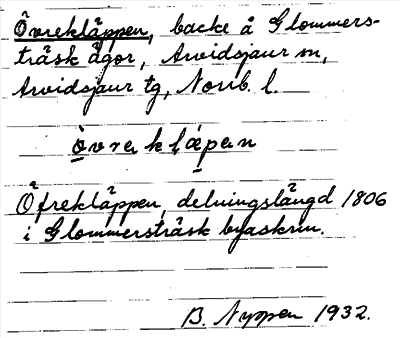 Övrekläppen, backe å Glommers-
träsk ägor, Arvidsjaur sn,
Arvidsjaur tg, Norrb. l.
òvrekläpen
Öfrekläppen, delningslängd 1806
i Glommersträsk byaskrin.
B. Nyppen 1932.